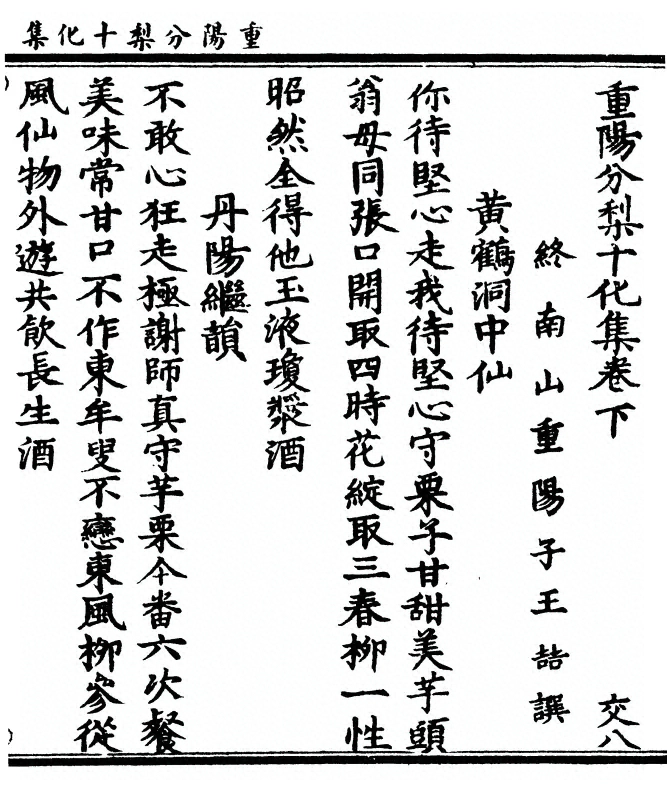 重陽分梨十化集
重陽分梨十化集卷下 交八
終南山重陽子王嚞撰
黃鶴洞中仙
你待堅心走我待堅心守栗子甘甜美芋頭
翁母同張口開取四時花綻取三春柳一性
昭然全得他玉液瓊漿酒
丹陽繼韻
不敢心狂走極謝師真守芋栗今番六次餐
美味常甘口不作東牟叟不戀東風柳參從
風仙物外遊共飲長生酒